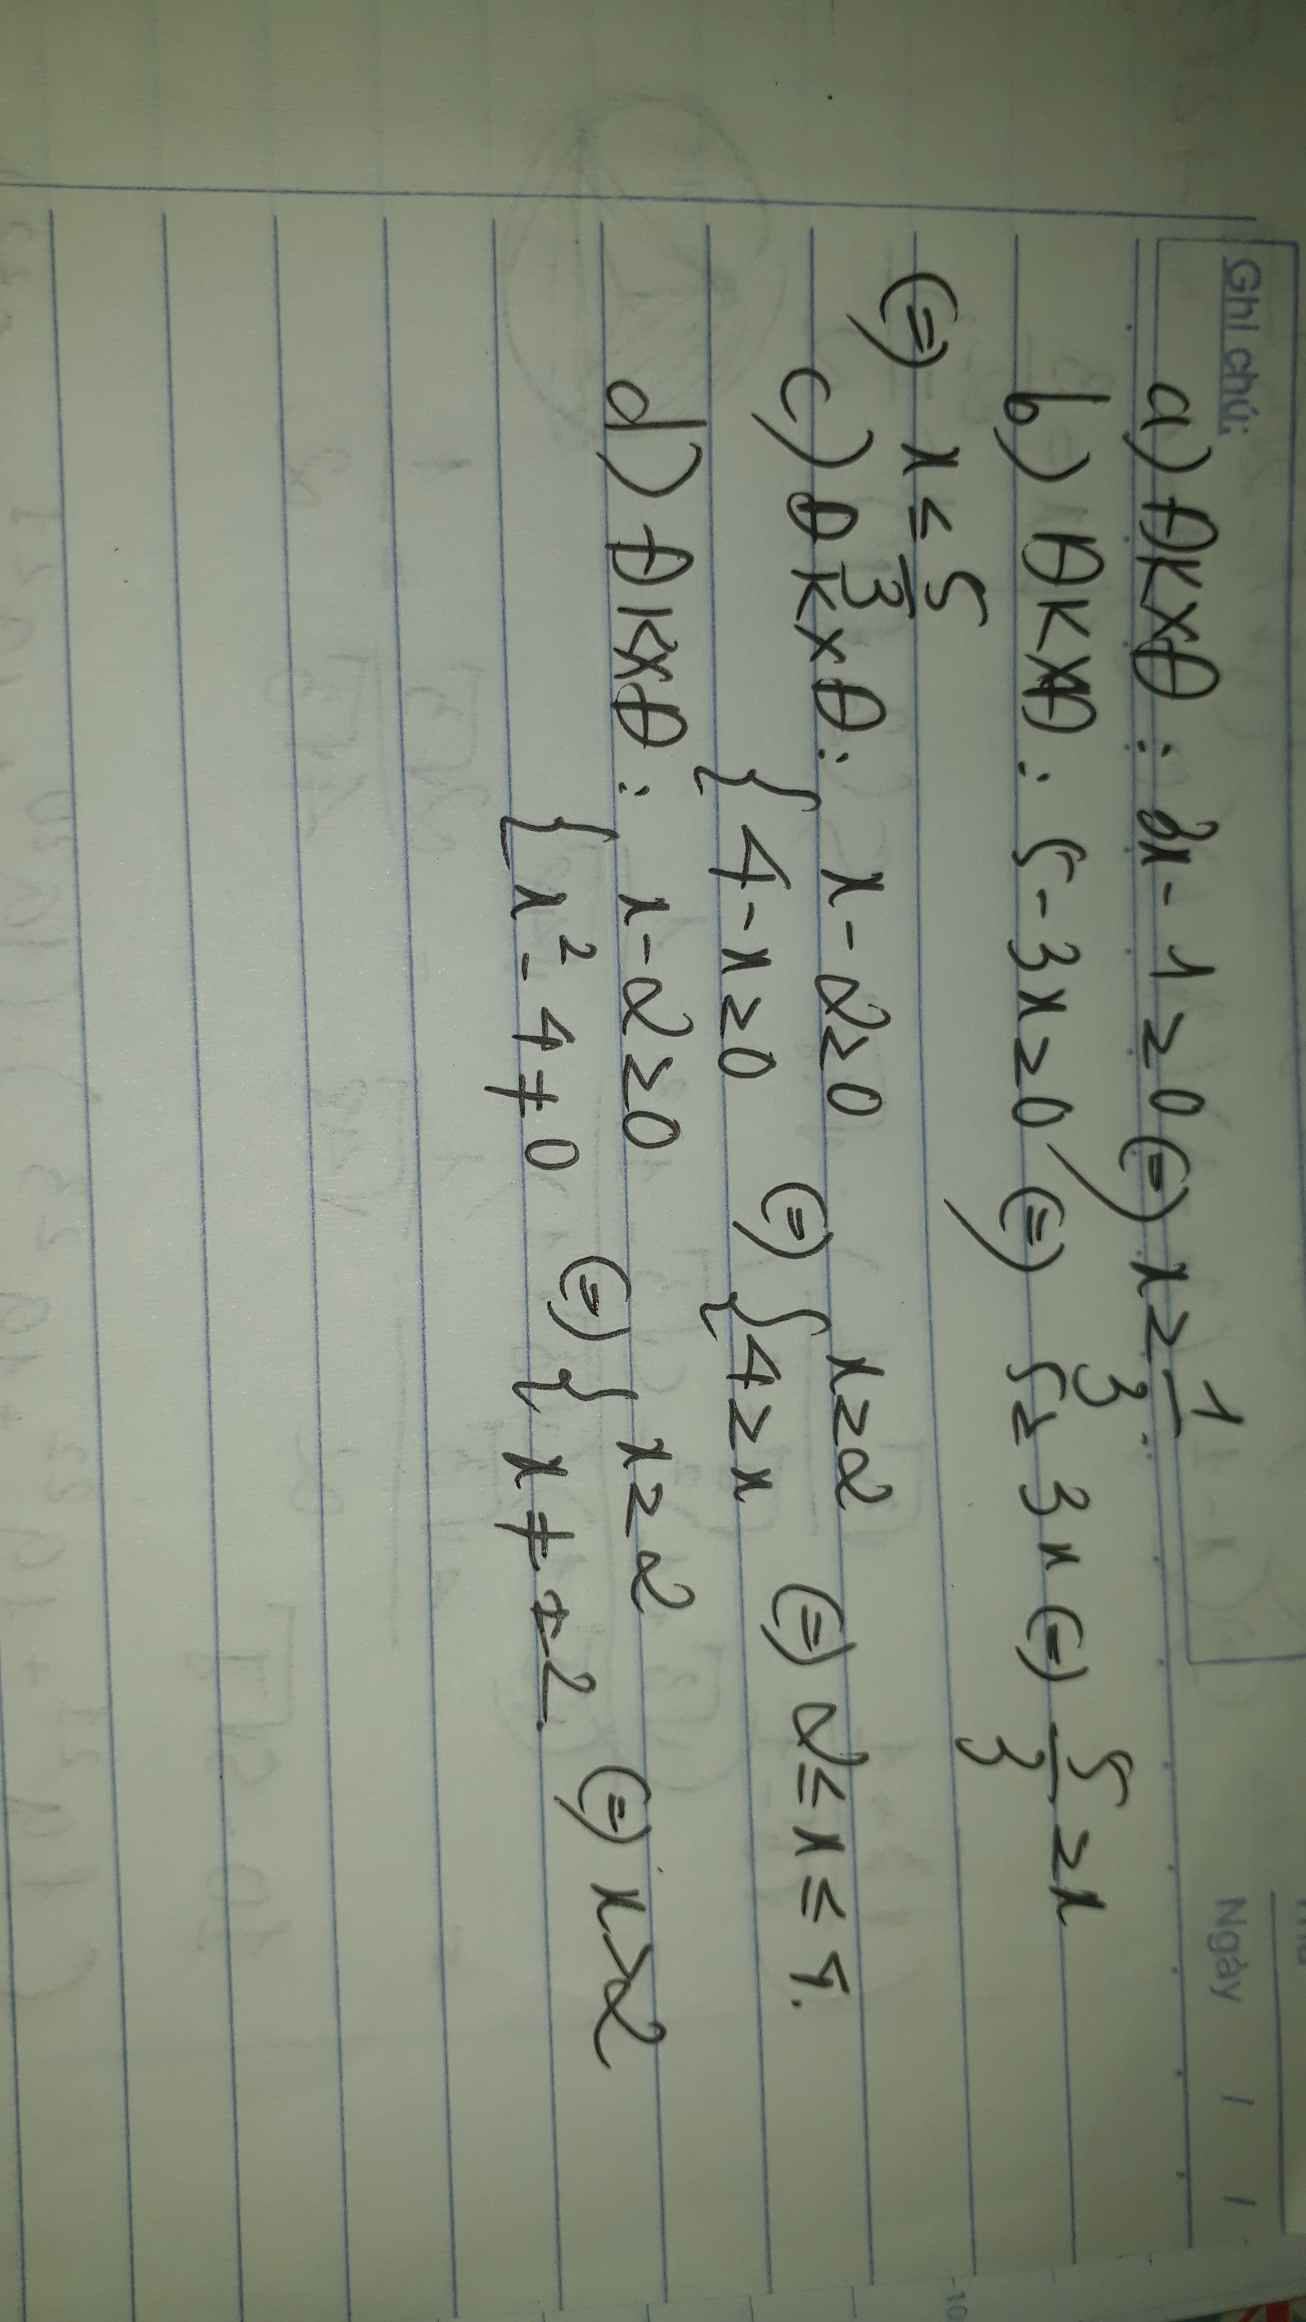 Ghi chú:
Ngày / /
a) ĐKXĐ : 3x - 1 ≥ 0 (=) x ≥ 1/3
b) ĐKXĐ : 5 - 3x ≥ 0 (=) 5 ≥ 3x (=) 5/3 ≥ x
(=) x ≤ 5/3
c) ĐKXĐ : { x - 2 ≥ 0 (=) { x ≥ 2 (=) 2 ≤ x ≤ 4.
4 - x ≥ 0 4 ≥ x
d) ĐKXĐ : { x - 2 ≥ 0 (=) { x ≥ 2 (=) x > 2
x² - 4 ≠ 0 x ≠ ±2